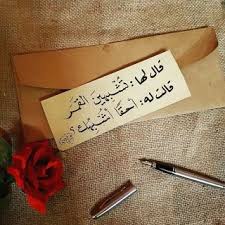 قال لها : تُشبهينَ القمر
قالت له : أحقًا أُشبهك ؟